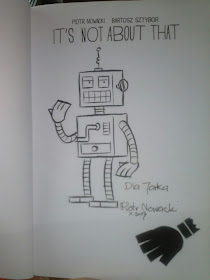 PIOTR NOWACKI BARTOSZ SZTYBOR
IT'S NOT ABOUT THAT
Dla Jarka
Piotr Nowacki